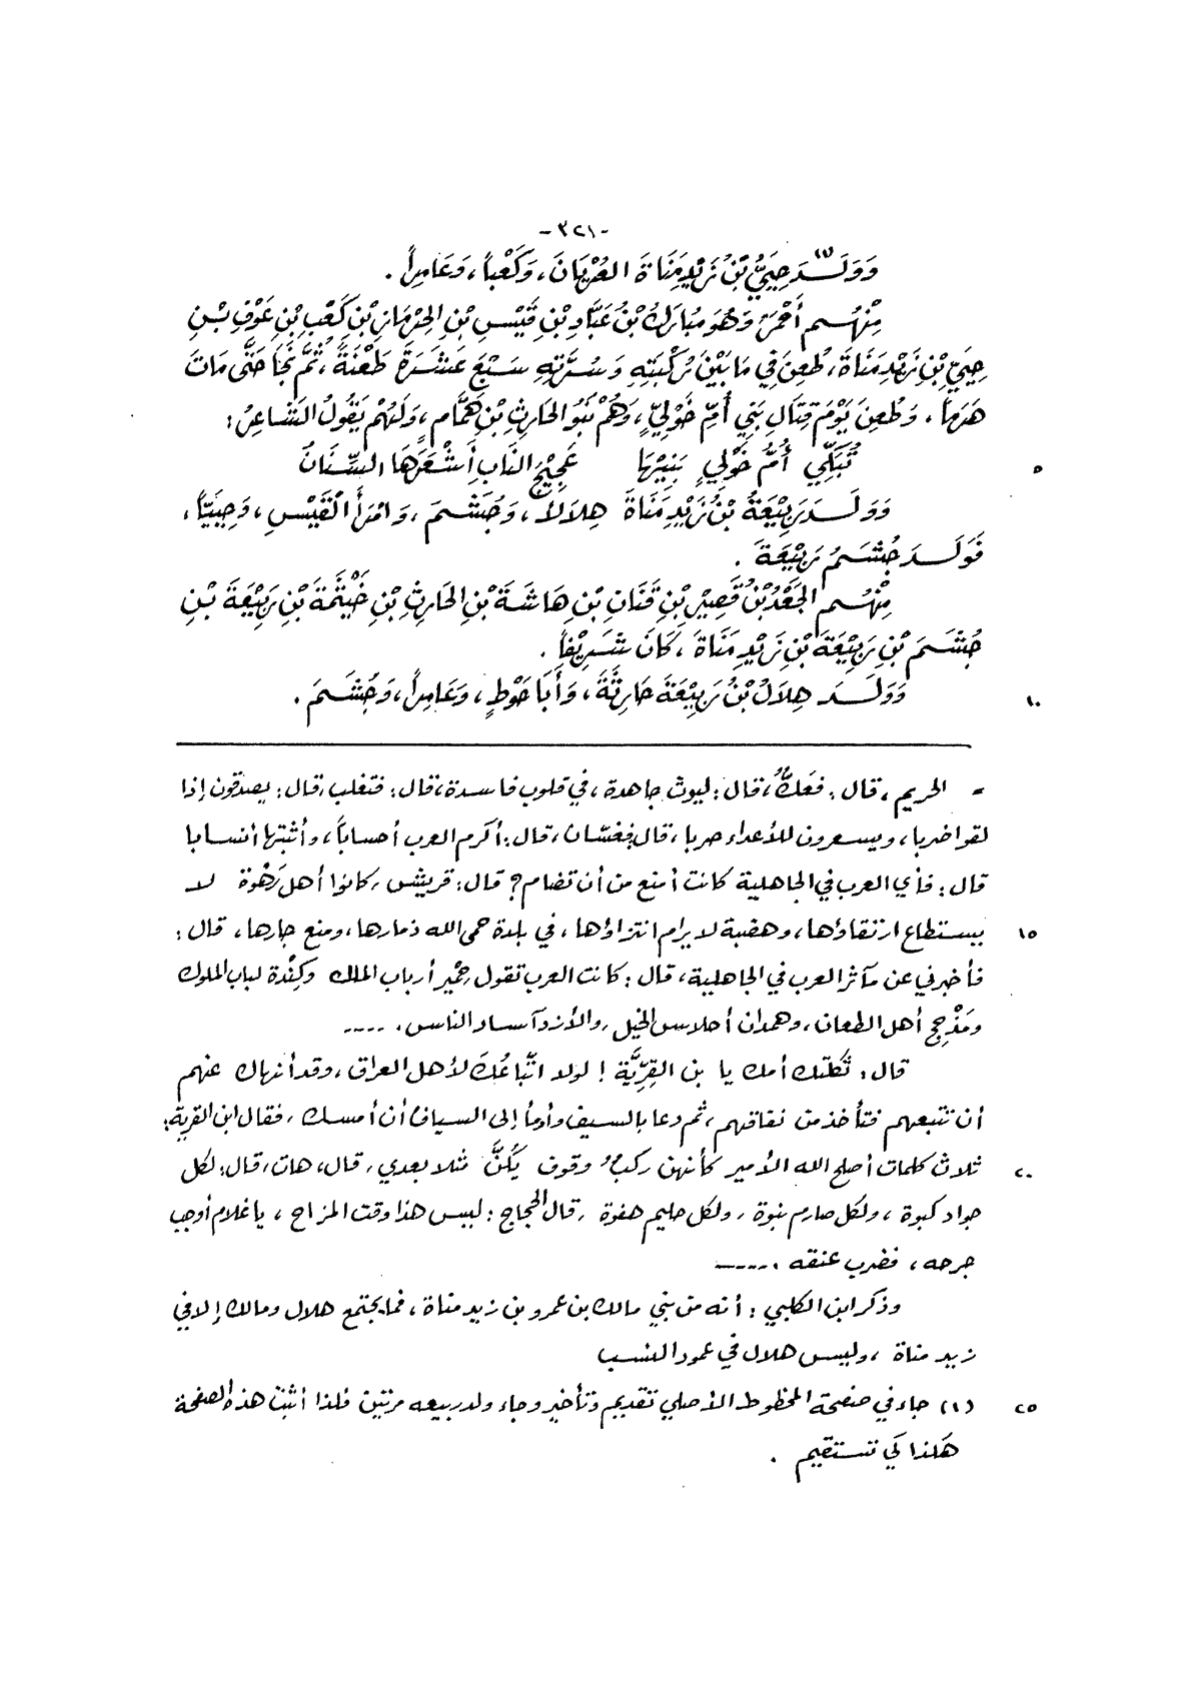 -٣٢١-
وَوَلَـــدَ(١) حِيَيُّ بْنُ زَيْدِ مَنَاةَ العُرْيَانَ، وَكَعْباً، وَعَامِراً.
مِنْهُـــم أَحْمَرُ وَهُوَ مُبَارَكُ بْنُ عَبَّادِ بْنِ قَيْسِ بْنِ الحِرْمَازِ بْنِ كَعْبِ بْنِ عَوْفِ بْـنِ
حِيَيِّ بْنِ زَيْدِ مَنَاةَ، طُعِنَ فِي مَا بَيْنَ رُكْبَتِهِ وَسُرَّتِهِ سَبْعَ عَشَرَةَ طَعْنَةً، ثُمَّ نَجَا حَتَّى مَاتَ
هَرَماً، وَطُعِنَ يَوْمَ قِتَالِ بَنِي أُمِّ خَوْلِيٍّ، وَهُمْ بَنُو الحَارِثِ بْنِ هَمَّامٍ، وَلَهُمْ يَقُولُ الشَّاعِرُ:
تُبَكِّي أُمُّ خَوْلِيٍ بَنِيْهَا عَجِيْجَ النَّابِ أَشْعَرَهَا السِّنَانُ
٥
وَوَلَـــدَ رَبِيْعَةُ بْنُ زَيْدِ مَنَاةَ هِلَالاً، وَجُشَمَ، وَامْرَأَ القَيْسِ، وَحِيَيّاً،
فَوَلَـــدَ جُشَمُ رَبِيْعَةَ.
مِنْهُـــم الجَعْدُ بْنُ قَصِيْرِ بْنِ قَنَانِ بْنِ هَاشَةَ بْنِ الحَارِثِ بْنِ خَيْثَمَةَ بْنِ رَبِيْعَةَ بْـنِ
جُشَمَ بْنِ رَبِيْعَةَ بْنِ زَيْدِ مَنَاةَ، كَانَ شَرِيْفاً.
وَوَلَـــدَ هِلَالُ بْنُ رَبِيْعَةَ حَارِثَةَ، وَأَبَا حَوْطٍ، وَعَامِراً، وَجُشَمَ.
١٠
= الحريم، قال: فعَكٌّ، قال: ليوث جاهدة، في قلوب فاسدة، قال: فتغلب، قال: يصدقون إذا
لقوا ضربا، ويسعرون للأعداء حربا، قال: فغسّان، قال: أكرم العرب أحساباً، وأثبتها أنسابا
قال: فأي العرب في الجاهلية كانت أمنع من أن تضام؟ قال: قريش، كانوا أهل رَهْوة لا
يستطاع ارتقاؤها، وهضبة لا يرام انتزاؤها، في بلدة حمى الله ذمارها، ومنع جارها، قال:
١٥
فأخبرني عن مآثر العرب في الجاهلية، قال: كانت العرب تقول حِمْير أرباب الملك وكِنْدة لباب الملوك
ومَذْحِج أهل الطعان، وهمدان أحلاس الخيل، والأزد آساد الناس. ----
قال: ثكلتك أمك يا بن القِرِّيَّة! لولا اتِّباعُكَ لأهل العراق، وقد أنهاك عنهم
أن تتبعهم فتأخذ من نفاقهم، ثم دعا بالسيف وأومأ إلى السياف أن أمسك، فقال ابن القرية:
ثلاث كلمات أصلح الله الأمير كأنهن ركبٌ وقوف يَكُنَّ مثلا بعدي، قال، هات، قال: لكل
٢٠
جواد كبوة، ولكل صارم نبوة، ولكل حليم هفوة، قال الحجاج: ليس هذا وقت المزاح، يا غلام أوجب
جرحه، فضرب عنقه. ----
وذكر ابن الكلبي: أنه من بني مالك بن عمرو بن زيد مناة، فما يجتمع هلال ومالك إلا في
زيد مناة، وليس هلال في عمود النسب
(١) جاء في صفحة المخطوط الأصلي تقديم وتأخير وجاء ولد ربيعه مرتين فلذا أثبت هذه الصفحة
٢٥
هكذا كي تستقيم.